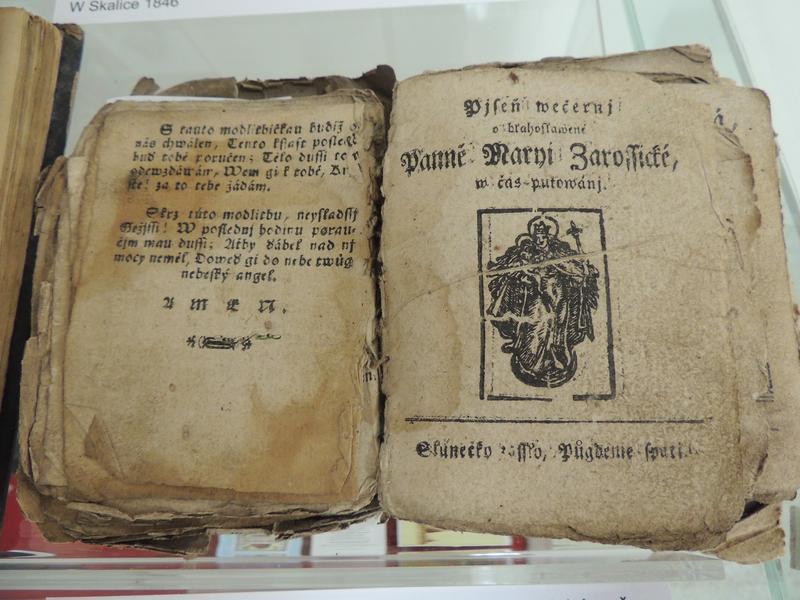 W Skalice 1846
S tauto modlitbičkau budiž
nás chwálen, Tento kssast posled
buď tobě poručen; Tělo dussi to
odewzdáwám, Wem gi k tobě,
za to tebe žádám.
Skrz túto modlitbu, neysladssij
Gežjssi! W poslednj hodinu porau-
čjm mau dussi; Ačby ďábel nad nj
mocy neměl, Doweď gi do nebe twůg
nebeský angel.
A M E N.
Pjseň wečernj
o blahoslawené
Panně Maryi Zarossické,
w čas putowánj.
Slunéčko zasslo, Půgdeme spati